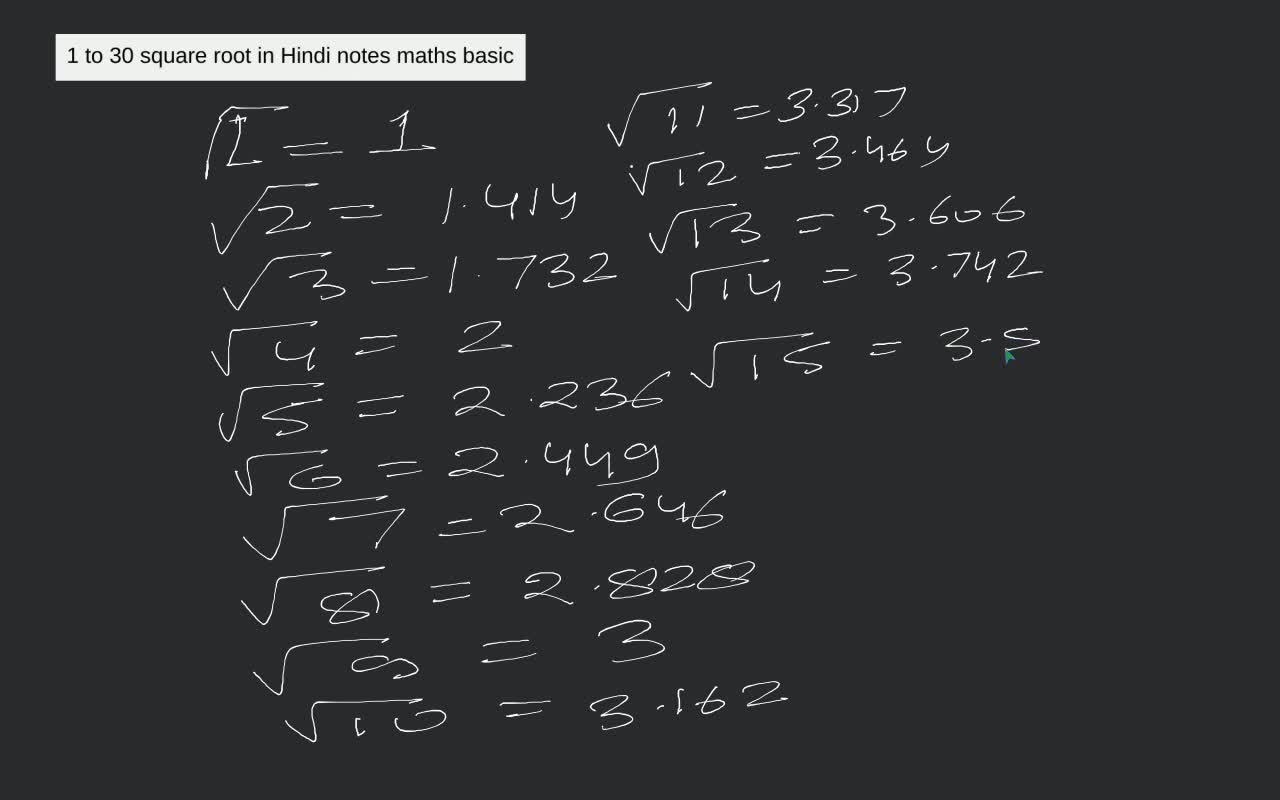 1 to 30 square root in Hindi notes maths basic
√1 = 1
√2 = 1.414
√3 = 1.732
√4 = 2
√5 = 2.236
√6 = 2.449
√7 = 2.646
√8 = 2.828
√9 = 3
√10 = 3.162
√11 = 3.317
√12 = 3.464
√13 = 3.606
√14 = 3.742
√15 = 3.5